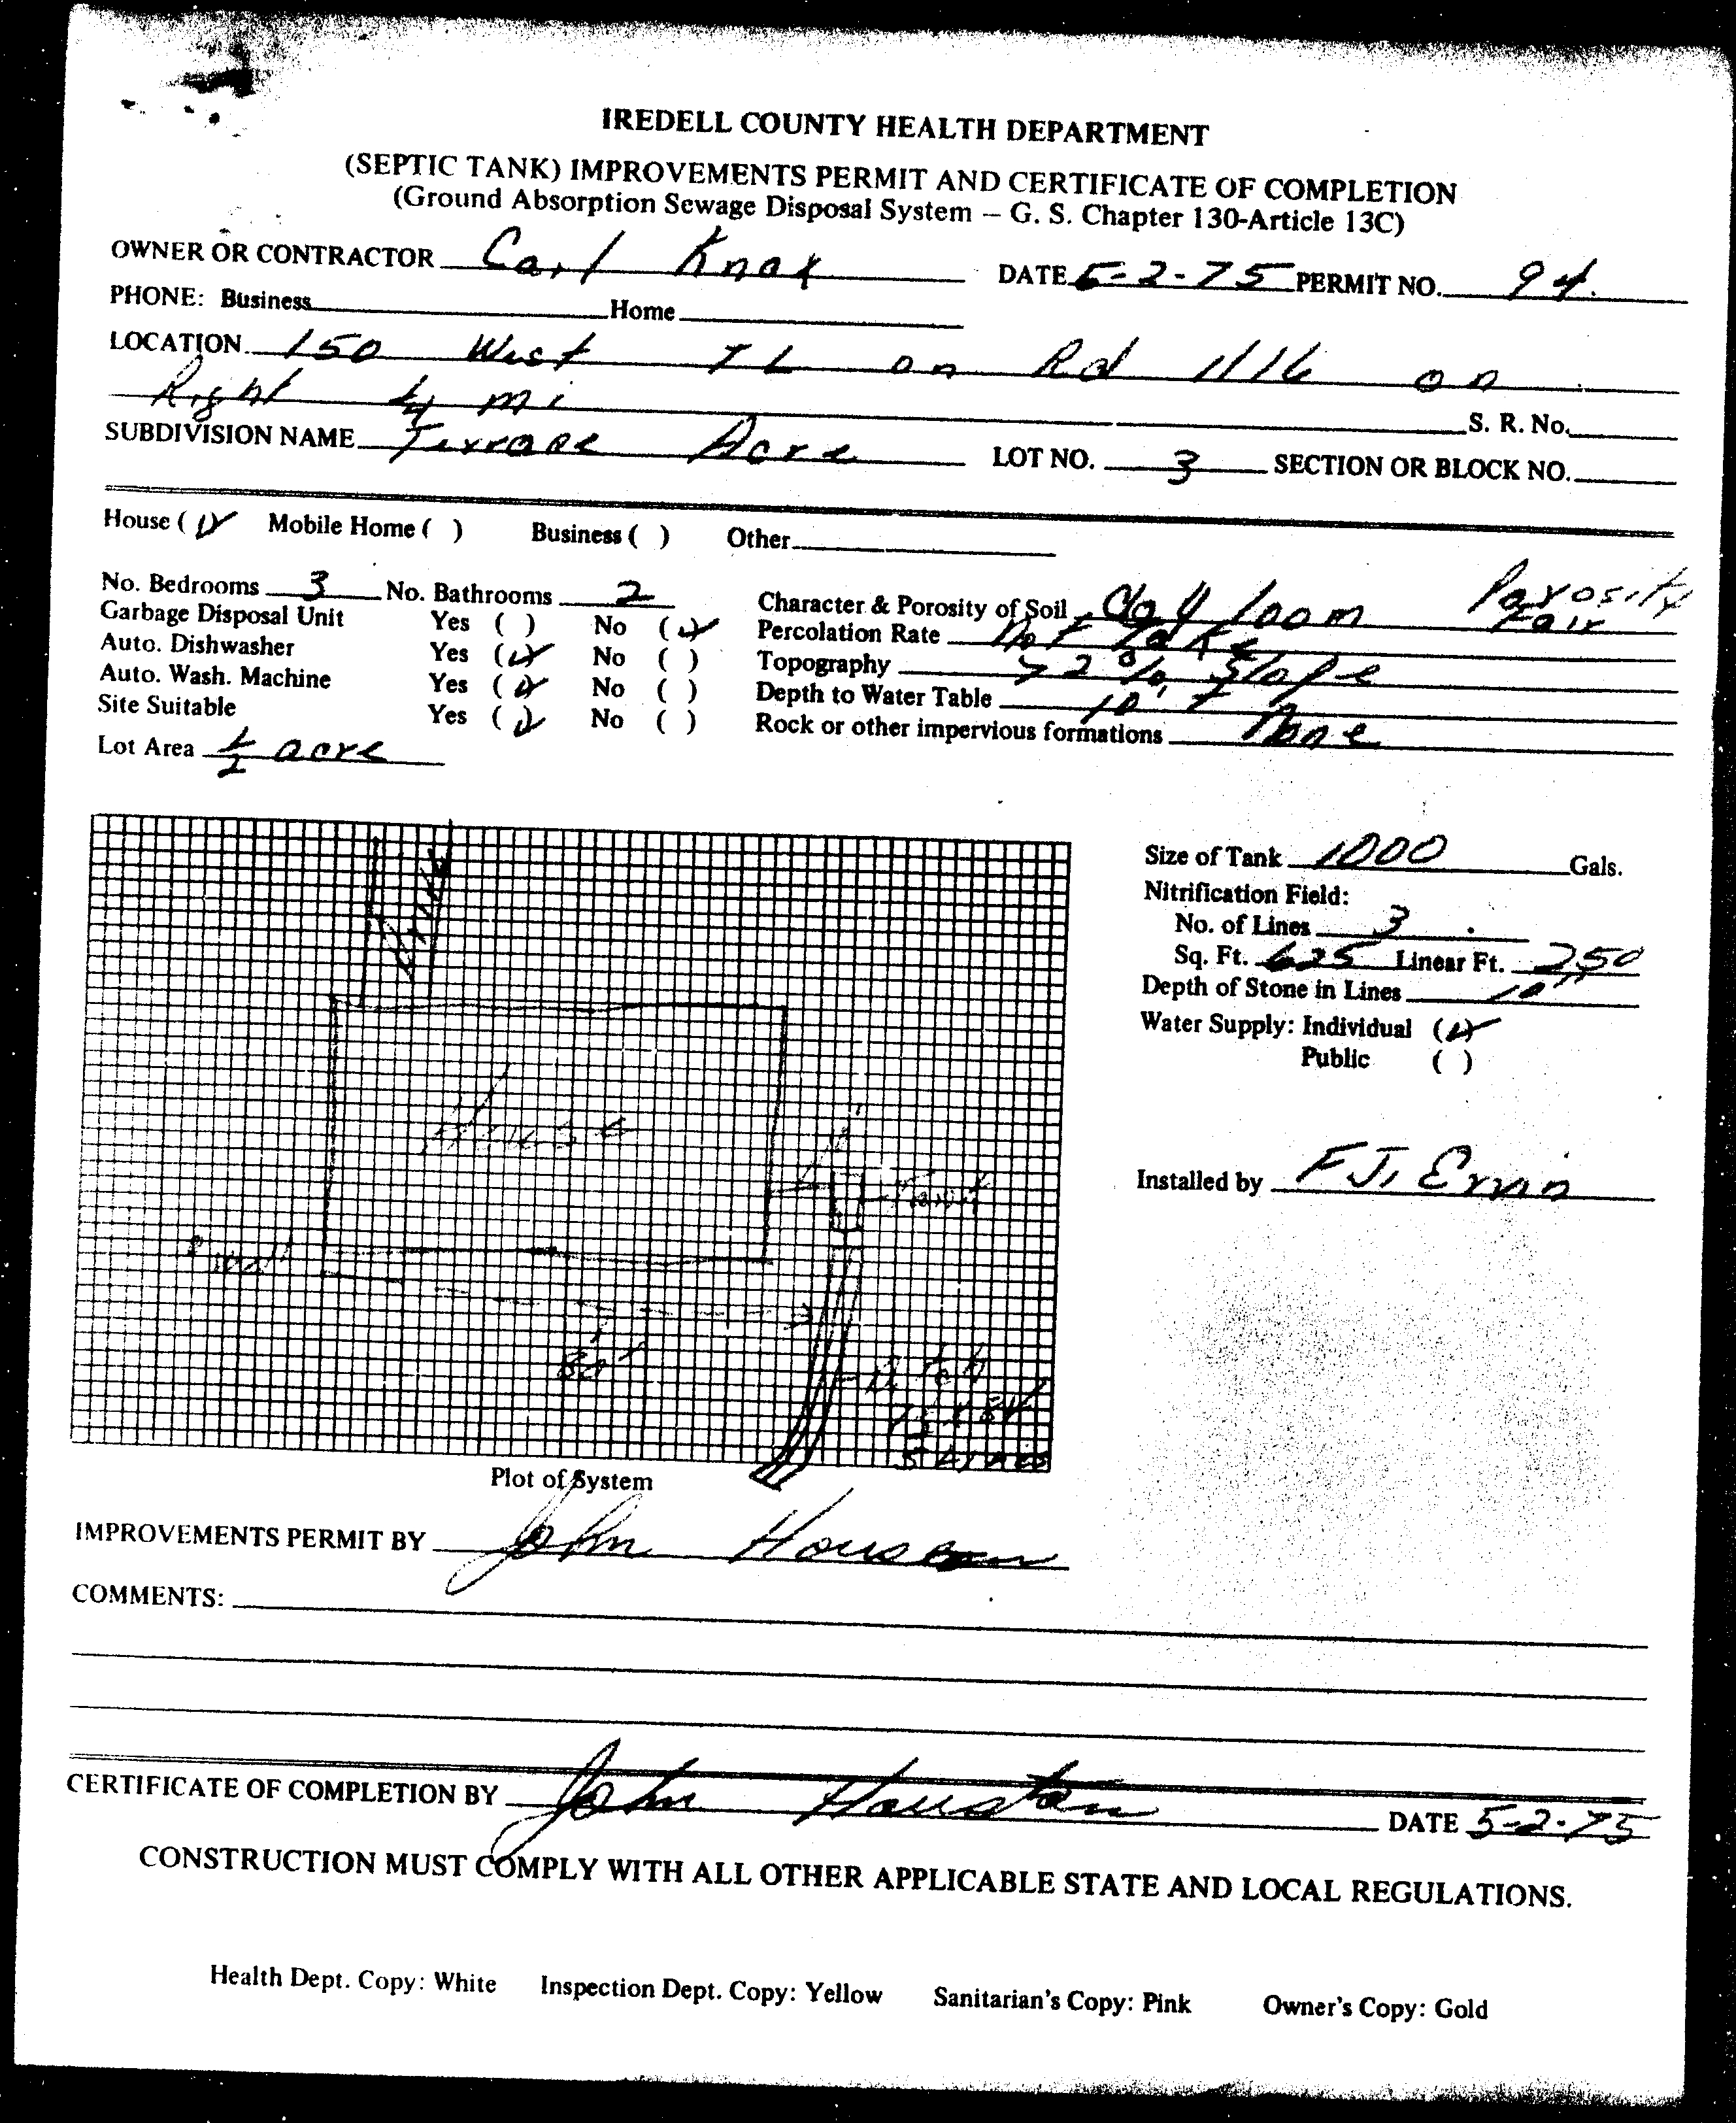 IREDELL COUNTY HEALTH DEPARTMENT
(SEPTIC TANK) IMPROVEMENTS PERMIT AND CERTIFICATE OF COMPLETION
(Ground Absorption Sewage Disposal System – G. S. Chapter 130-Article 13C)
OWNER OR CONTRACTOR Carl Knox DATE 5-2-75 PERMIT NO. 94.
PHONE: Business Home
LOCATION 150 West TL on Rd 1116 on
Right 1/4 mi S. R. No.
SUBDIVISION NAME Terrace Acre LOT NO. 3 SECTION OR BLOCK NO.
House (✓) Mobile Home ( ) Business ( ) Other
No. Bedrooms 3 No. Bathrooms 2 Character & Porosity of Soil Clay loom Porosity Fair
Garbage Disposal Unit Yes ( ) No (✓) Percolation Rate Not Take
Auto. Dishwasher Yes (✓) No ( ) Topography >2% Slope
Auto. Wash. Machine Yes (✓) No ( ) Depth to Water Table 10' +
Site Suitable Yes (✓) No ( ) Rock or other impervious formations None
Lot Area 1/2 acre
Drive
Size of Tank 1000 Gals.
Nitrification Field:
No. of Lines 3
Sq. Ft. 625 Linear Ft. 250
Depth of Stone in Lines 10"
Water Supply: Individual (✓)
Public ( )
House
Tank
Installed by F J. Ervin
Well
80' +
Plot of System
IMPROVEMENTS PERMIT BY John Houston
COMMENTS:
CERTIFICATE OF COMPLETION BY John Houston DATE 5-2-75
CONSTRUCTION MUST COMPLY WITH ALL OTHER APPLICABLE STATE AND LOCAL REGULATIONS.
Health Dept. Copy: White Inspection Dept. Copy: Yellow Sanitarian's Copy: Pink Owner's Copy: Gold